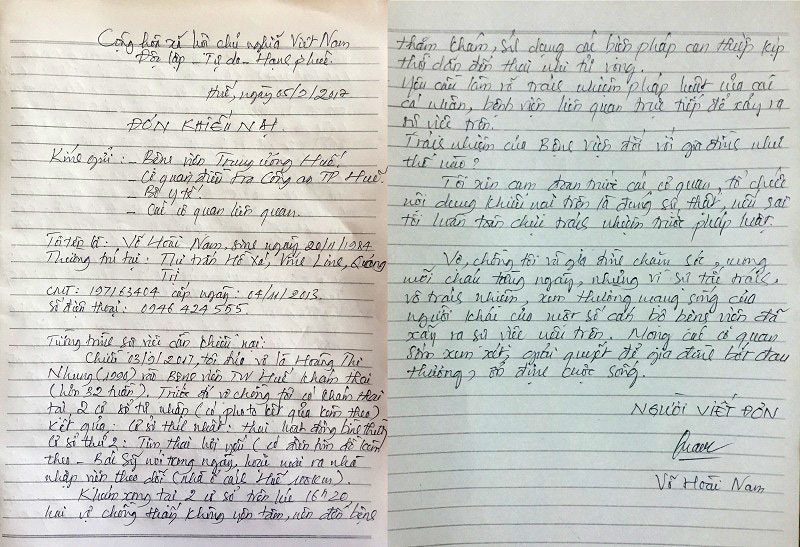 Cộng hòa xã hội chủ nghĩa Việt Nam
Độc lập - Tự do - Hạnh phúc.
Huế, ngày 05/9/2017
ĐƠN KHIẾU NẠI
Kính gửi: - Bệnh viện Trung ương Huế.
- Cơ quan điều tra Công an TP. Huế.
- Bộ y tế.
- Các cơ quan liên quan.
Tôi tên là: Võ Hoài Nam, sinh ngày 20/11/1984
Thường trú tại: Thị trấn Hồ Xá, Vĩnh Linh, Quảng
Trị
CMT: 197163404 cấp ngày: 04/11/2013.
Số điện thoại: 0946 424 555
Tường trình sự việc cần khiếu nại:
Chiều 03/9/2017, tôi đưa vợ là Hoàng Thị
Nhung (1990) vào Bệnh viện TW Huế khám thai
(hơn 32 tuần). Trước đó vợ chồng tôi có khám thai
tại 2 cơ sở tư nhân (có photo kết quả kèm theo)
Kết quả: Cơ sở thứ nhất: thai hoạt động bình thường
Cơ sở thứ 2: Tim thai hơi yếu (có điện tim đồ kèm
theo - Bác sỹ nói trong ngày, hoặc mai ra nhà
nhập viện theo dõi (nhà ở cách Huế 100km).
Khám xong tại 2 cơ sở trên lúc 16h20,
hai vợ chồng thấy không yên tâm, nên đến bệnh
thăm khám, sử dụng các biện pháp can thiệp kịp
thời dẫn đến thai nhi tử vong.
Yêu cầu làm rõ trách nhiệm pháp luật của các
cá nhân, bệnh viện liên quan trực tiếp để xảy ra
sự việc trên.
Trách nhiệm của Bệnh viện đối với gia đình như
thế nào?
Tôi xin cam đoan trước các cơ quan, tổ chức
nội dung khiếu nại trên là đúng sự thật, nếu sai
tôi hoàn toàn chịu trách nhiệm trước pháp luật.
Vợ, chồng tôi và gia đình chăm sóc, mong
mỏi cháu từng ngày, nhưng vì sự tắc trách,
vô trách nhiệm, xem thường mạng sống của
người khác của một số cán bộ bệnh viện đã
xảy ra sự việc nêu trên. Mong các cơ quan
sớm xem xét, giải quyết để gia đình bớt đau
thương, ổn định cuộc sống.
NGƯỜI VIẾT ĐƠN
Võ Hoài Nam